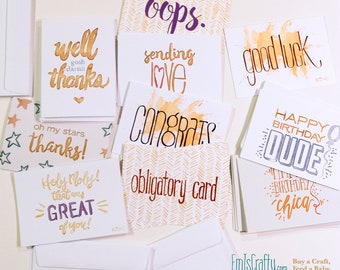 oops.
well
gosh
darnit
thanks.
sending
love
good luck.
oh my stars
thanks!
congrats
HAPPY
BIRTHDAY
DUDE
Holy Moly!
that was
GREAT
of you!
obligatory card
BIRTHDAY
chica!
EmIsCrafty.com
Buy a Craft,
Feed a Baby.